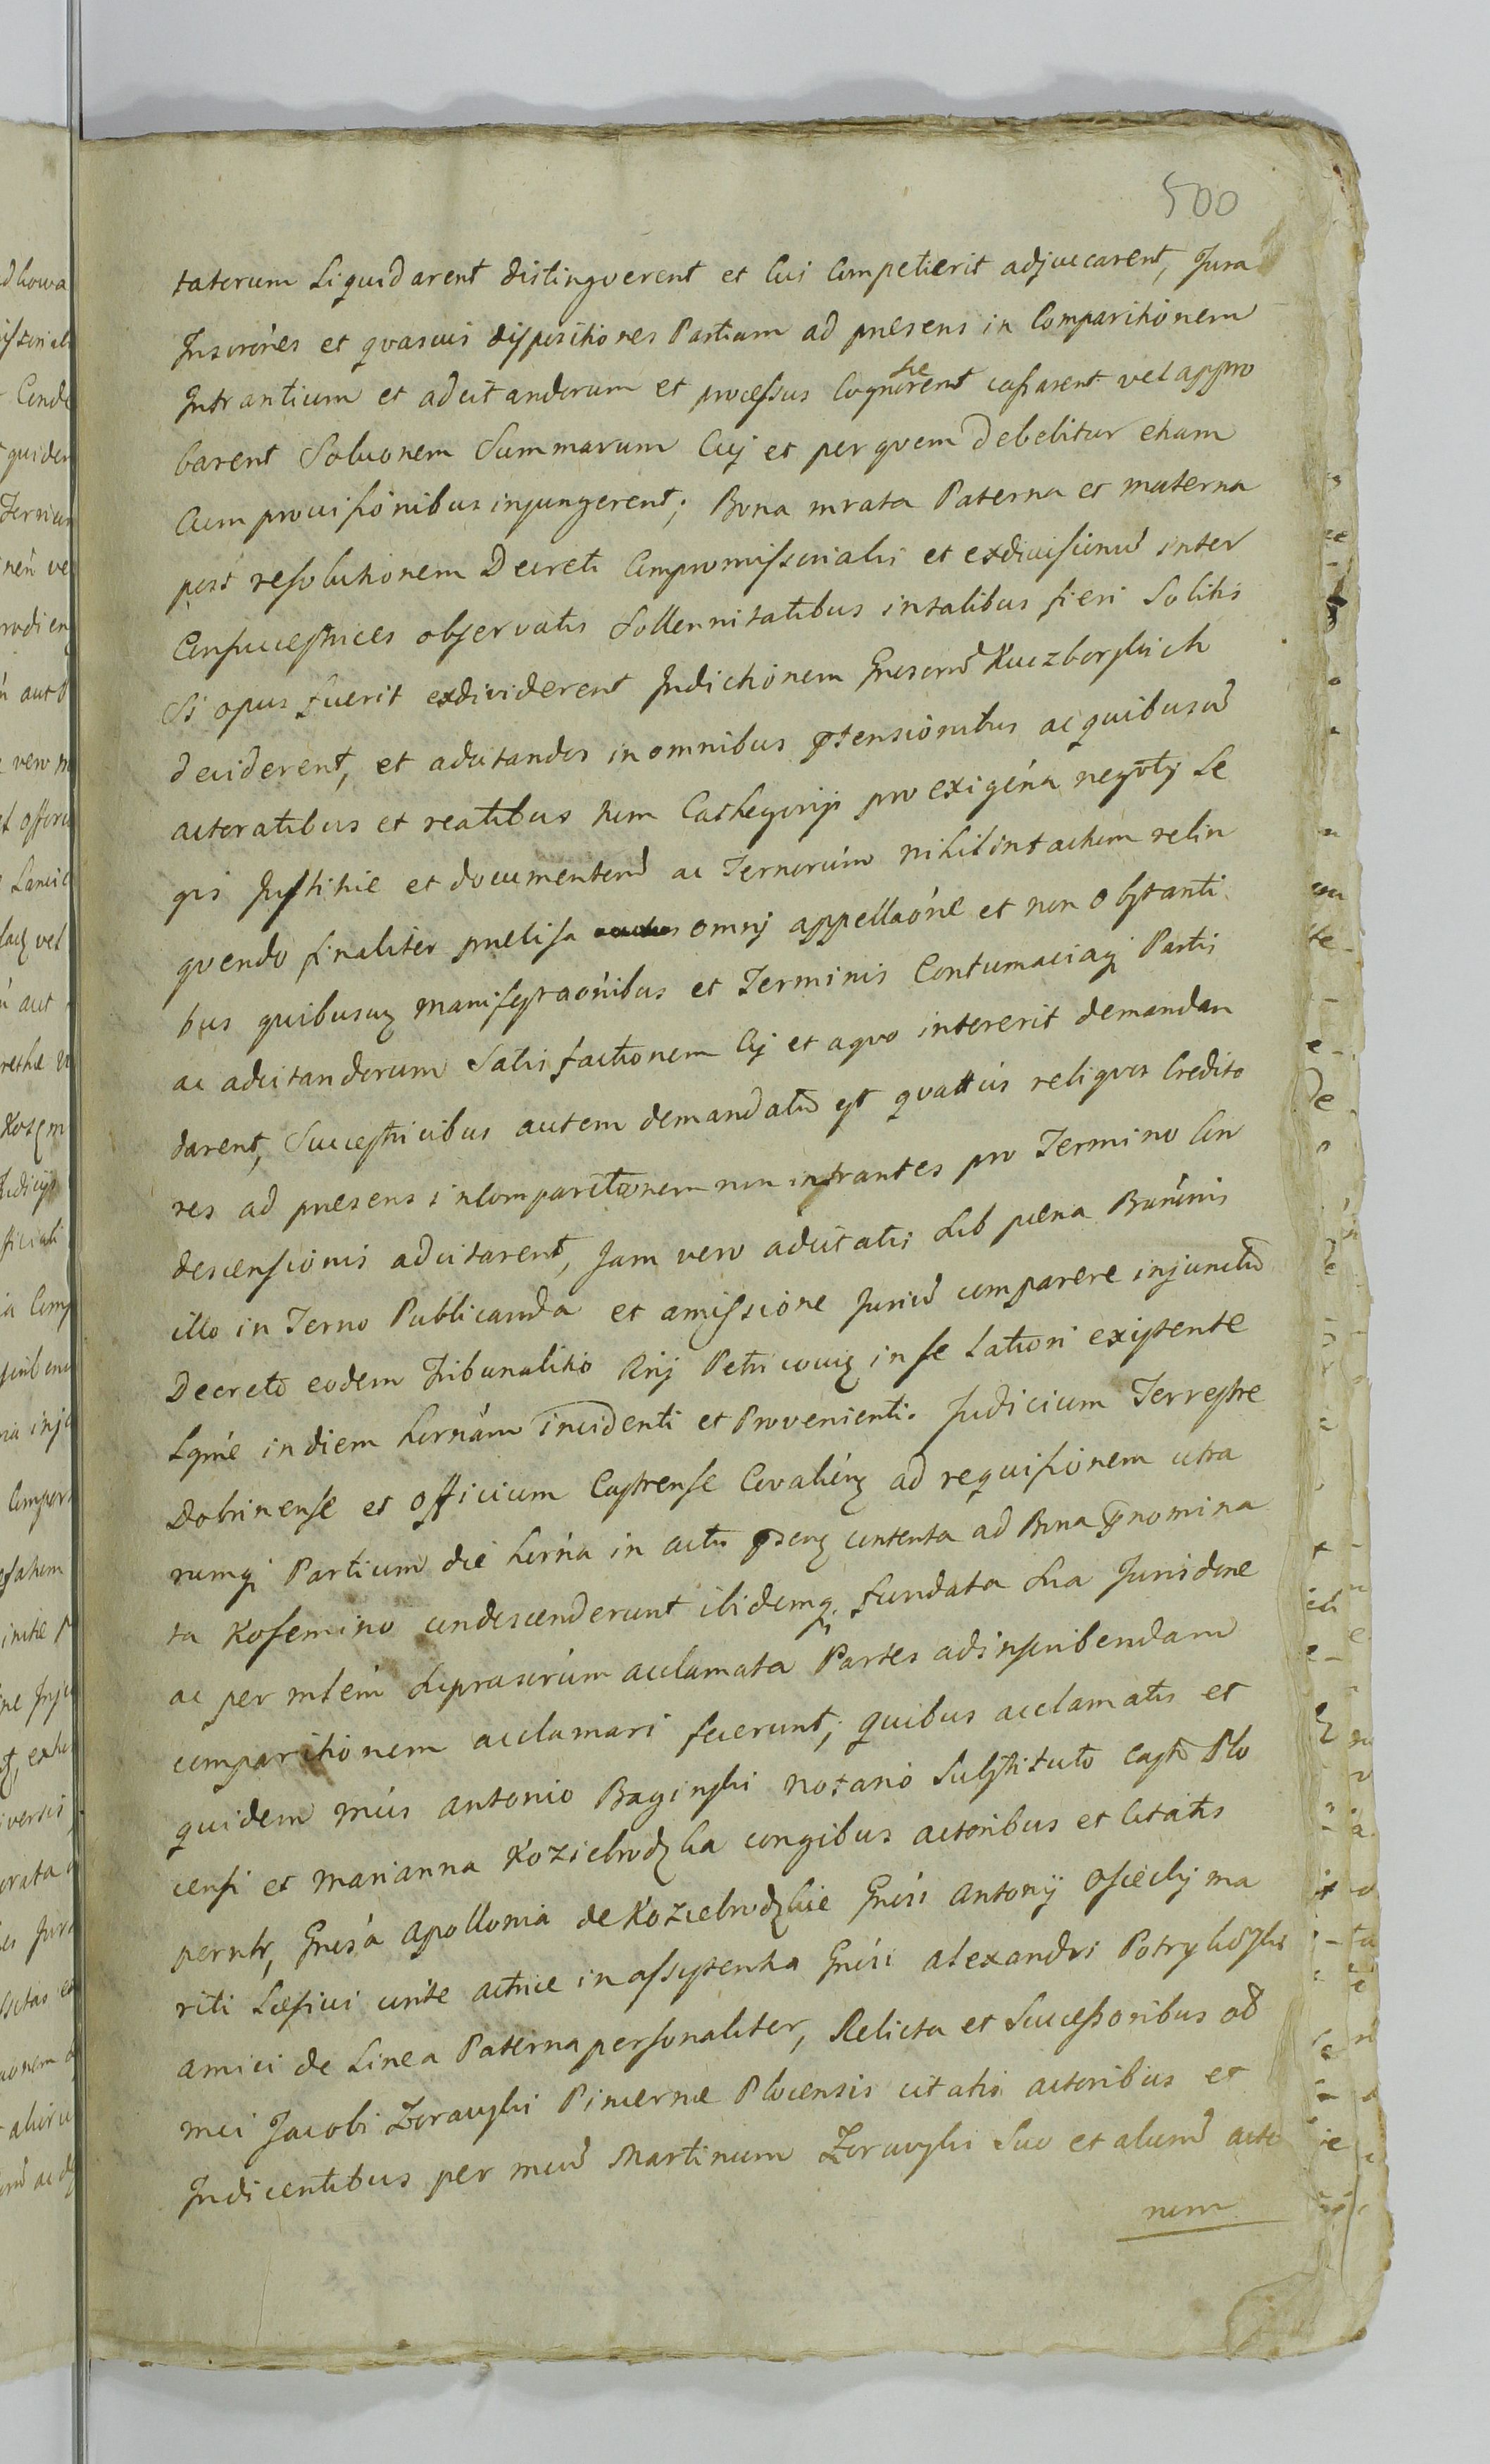 500
tatorum Liquidarent distingverent et Cui Competierit adjucarent, Jura
Inscrónes et qvasvis dispositiones Partium ad presens in Comparitionem
Intrantium et adcitandorum et processus Cognoscerent cassarent vel appro
barent Solvonem Summarum Cuj et per qvem debebitur etiam
Cum provisionibus injungerent; Bona mrata Paterna et materna
post resolutionem Decreti Compromissorialis et exdivisionū inter
Consuccestrices observatis Sollennitatibus in talibus fieri Solitis
Si opus fuerit exdividerent Indictionem Gnosorū Kuczborskich
deciderent, et adcitandos in omnibus ptensionibus ac quibusvis
actoratibus et reatibus tum Cathegorijs pro exigéna negotij Se
qvi Justitie et documentorū ac Ternorúm nihil intactum relin
qvendo finaliter precisa omnj appellaóne et non obstanti
bus quibusvis manifestaónibus et Terminis Contumaciaq Partis
ac adcitandorum Satisfactionem Cuj et aqvo intererit demandan
darent, Successtricibus autem demandatū est qvattus reliqvos Credito
res ad presens in Comparitionem non intrantes pro Termino Con
descensionis adcitarent, Jam vero adcitatis sub pæna Banónis
illo in Terno Publicanda et amissione Juriū comparere injunctū
Decreto eodem Tribunalitio Rnj Petricoviȩ in se Latiori existente
Lqme in diem hornám incidenti et Provenienti. Judicium Terrestre
Dobrinense et officium Castrense Bovalién ad reqvisionem utra
rumq Partium die horna in actu pseng contenta ad Bona pnomina
ta Kosemino condescenderunt ibidemq fundata sua Jurisdone
ac per mlem Suprascrúm acclamata Partes ad inscribendam
comparitionem acclamari fecerunt; quibus acclamatis et
quidem múis antonio Baginski notario Substituto Cast Plo
censi et marianna Koziebrodzka congibus actoribus et Citatis
per ntr, Gnosá Apollonia de Koziebrodzkie Gnósi Antonij Osiecky ma
riti Læsivi unite actrice in assystentia Gnósi alexandri Potrykoski
amici de Linea Paterna personaliter, Relicta et Successoribus od
mei Jacobi Zorawski Pincernæ Plocensis citatis actoribus et
Indicentibus per mcū Martinum Zorawski Suo et aliorū acto
num